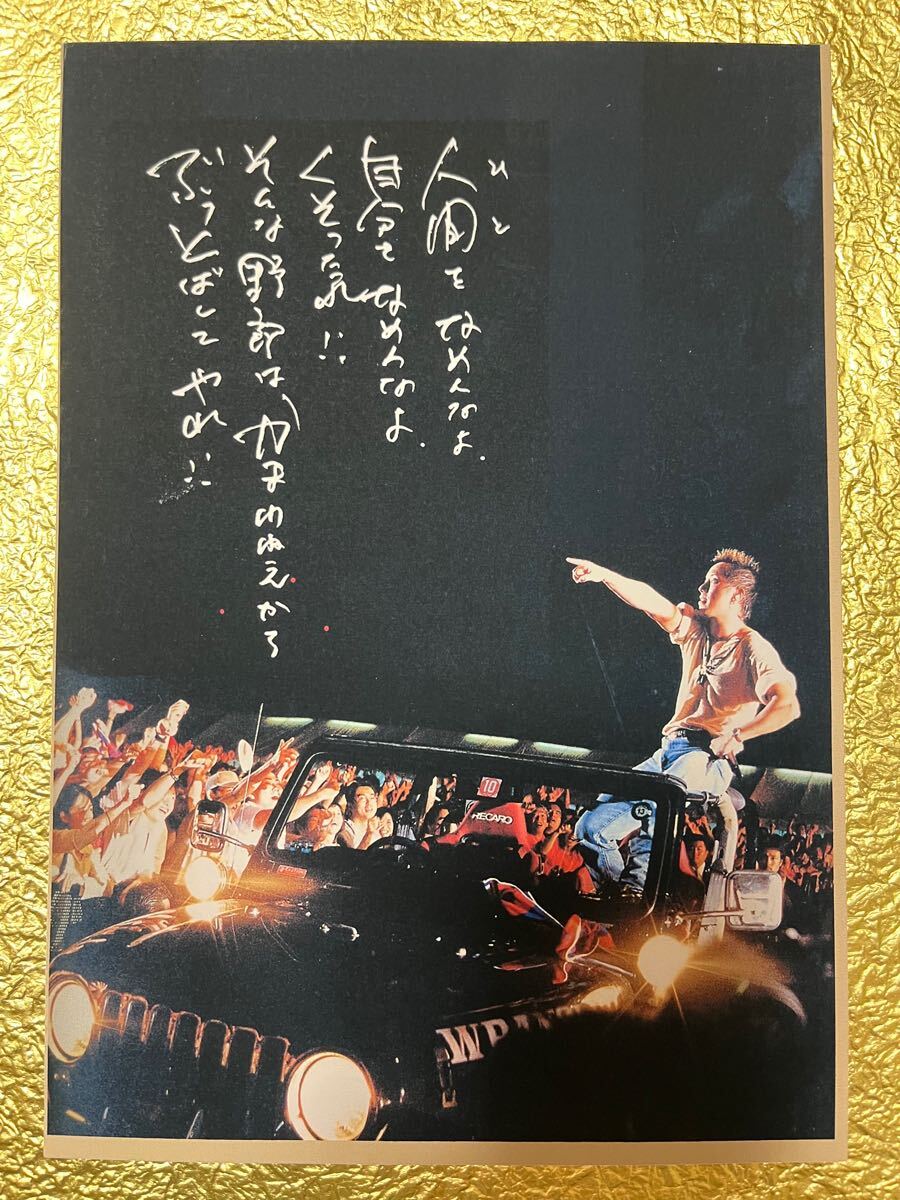 人間をなめんなよ.
ひと
自分をなめんなよ.
くそったれ!!
そんな野郎は、かまわねえから
ぶっとばしてやれ!!
10
RECARO